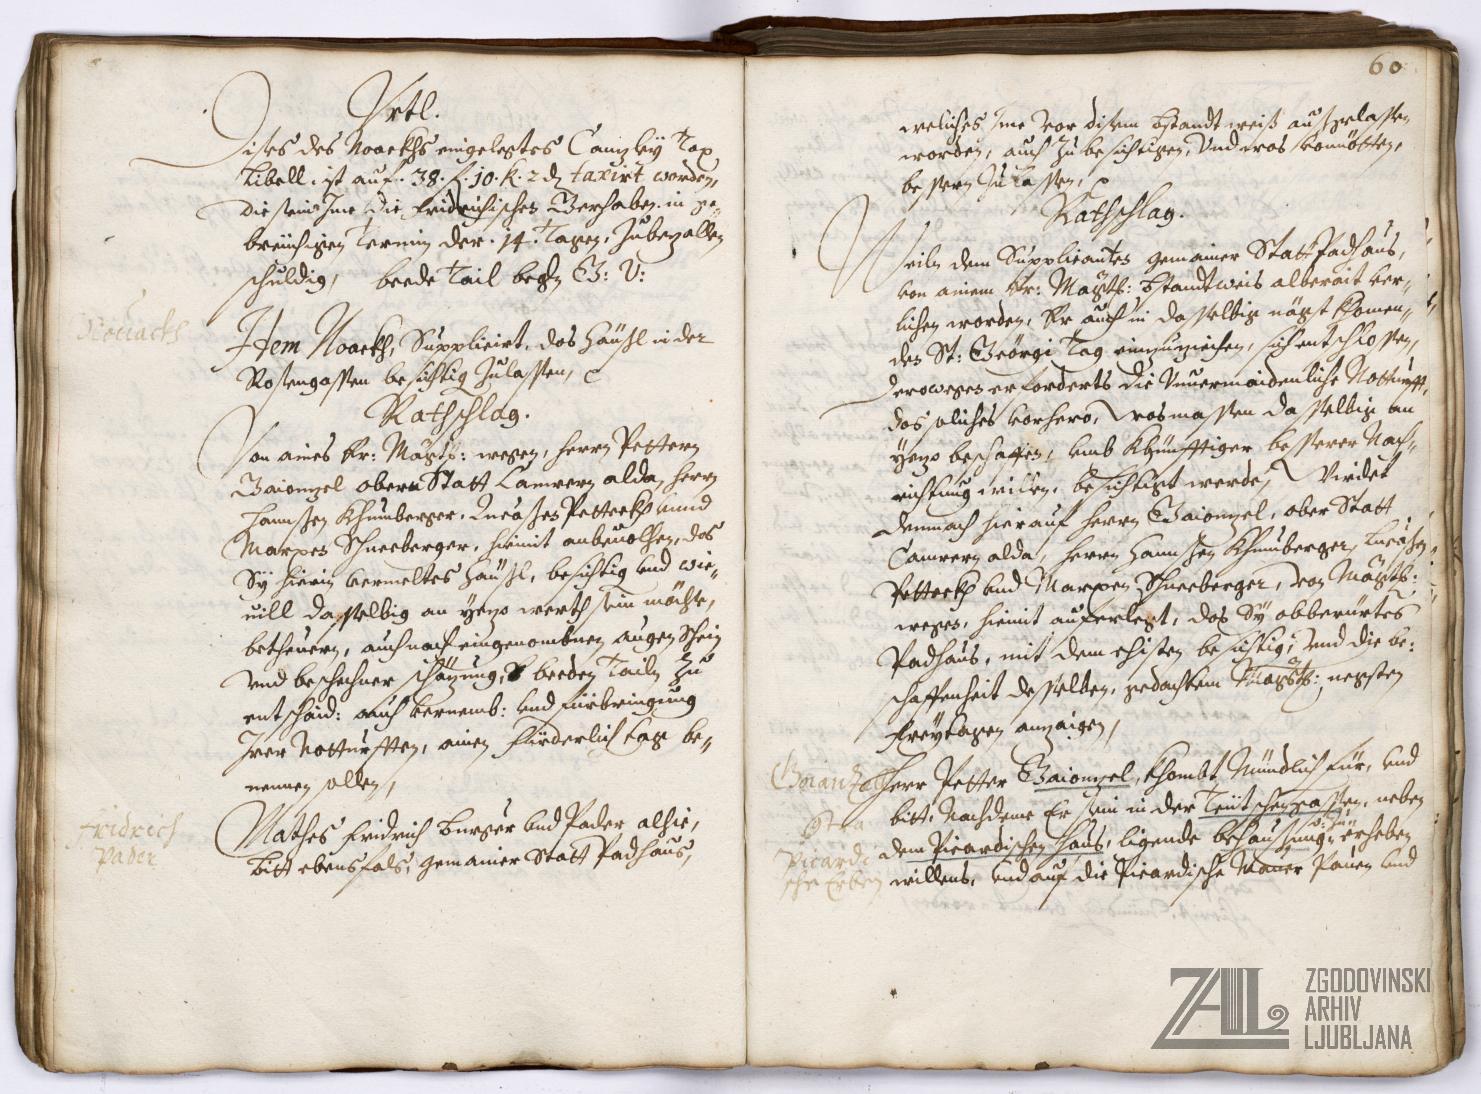 Vrtl.
Dises des Noackhs eingelegtes Canzley Tax
Libell. ist auf. 38. f. 10. k. 2 d. taxirt worden,
die sein Ime die Fridrichischen Gerhaben. in ge-
breüchigen Termin der. 14. Tagen, zubezallen
schuldig, beede Tail begern G: V:
Nouackh
Item Noackh, Supplicirt, das Häußl in der
Rosengassen besichtig zulassen,
Rathschlag.
Von aines Er: Magts: wegen, herrn Pettern
Gaionzel obern Statt Camrern alda, herrn
Hannßen Khumberger, Lucaßen Petteckh vnnd
Marxen Schneeberger, hiemit anbeuolhen, das
Sÿ hierin vermeltes Häußl, besichtig vnd wie-
uill dasselbig an yezo werth sein möchte,
betheuern, auch nach eingenombnen augenschein
vnd beschechner schäzung, beeden Tailn zu
entschaid: auch vernemb: vnd fürbringung
Irer Notturfften, ainen fürderlich tag be-
nennen sollen,
Fridrich
Pader
Mathes Fridrich Burger vnd Pader alhie,
bitt ebensfals, gemainer Statt Padhaus,
60
welliches Ime vor disem bstandtweiß außgelassen
worden, auch zu besichtigen, vnd was vonnötten,
bessern zulassen,
Rathschlag.
Weiln dem Supplicanten gemainer Statt Padhaus,
von ainem Er: Magts: bstandtweis alberait ver-
lichen worden, Er auch in dasselbig nägst khomen-
des St: Geörgi Tag einzuziechen, sich entschlossen,
derowegen erforderts die Vnuermaidenliche Notturfft,
das soliches vorhero, wasmassen dasselbig an
yezo beschaffen, vmb khünfftiger besserer Nach-
richtung willen, besichtigt werde, Wirdet
demnach hierauf herrn Gaionzel, ober Statt
Camrern alda, herrn Hannßen Khumberger, Lucaßen
Petteckh vnd Marxen Schneeberger, von Magts:
wegen, hiemit auferlegt, das Sÿ obberürtes
Padhaus, mit dem ehisten besichtig, vnd die be-
schaffenheit desselben, gedachtem Magts: negsten
Freytagen anzaigen,
Gaianzel
Ctra
Picardi
sche Erben
Herr Petter Gaionzel, khombt Mündlich für, vnd
bitt, Nachdeme Er sein in der Teütschengassen, neben
dem Picardischen Haus, ligende behaussung, zu erheben
willens, vnd auf die Picardische Mauer Pauen vnd
ZAL
ZGODOVINSKI
ARHIV
LJUBLJANA